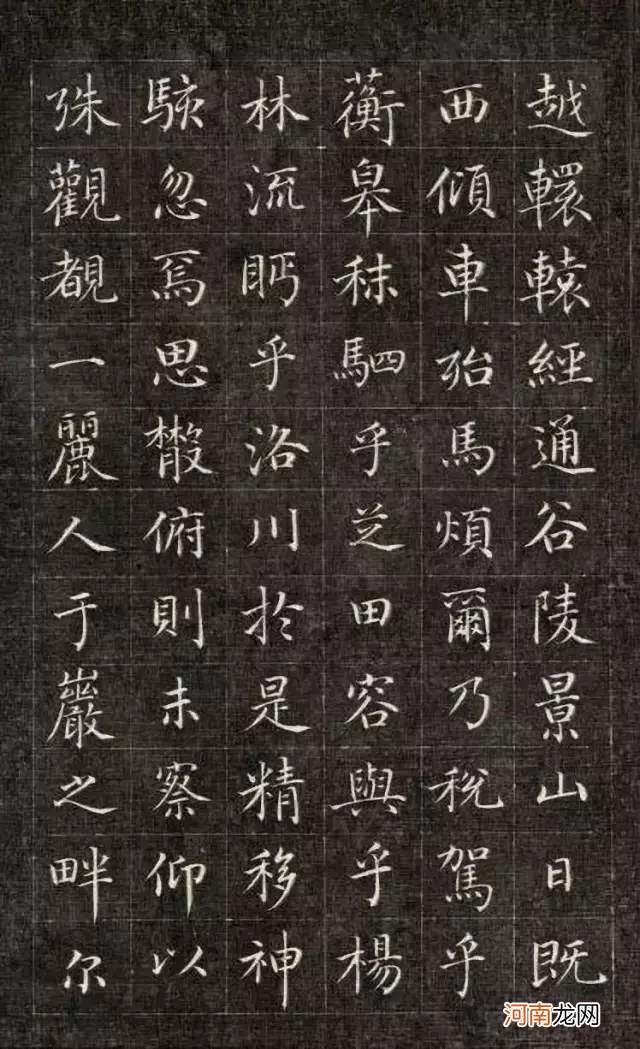 越轘轅經通谷陵景山日既
西傾車殆馬煩爾乃稅駕乎
蘅皋秣駟乎芝田容與乎楊
林流眄乎洛川於是精移神
駭忽焉思散俯則未察仰以
殊觀覩一麗人于巖之畔尔
河南龙网